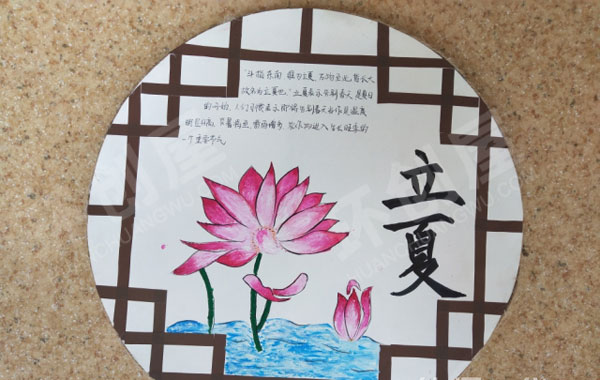 "斗指东南 维为立夏,万物至此皆长大
故名为立夏也。"立夏表示告别春天 是夏日
的开始,人们习惯表示即将告别春天也作是温度
明显升高,炎暑将至,雷雨增多,农作物进入生长旺季的
一个重要节气
立夏
环创屋
CHUANGWU.COM